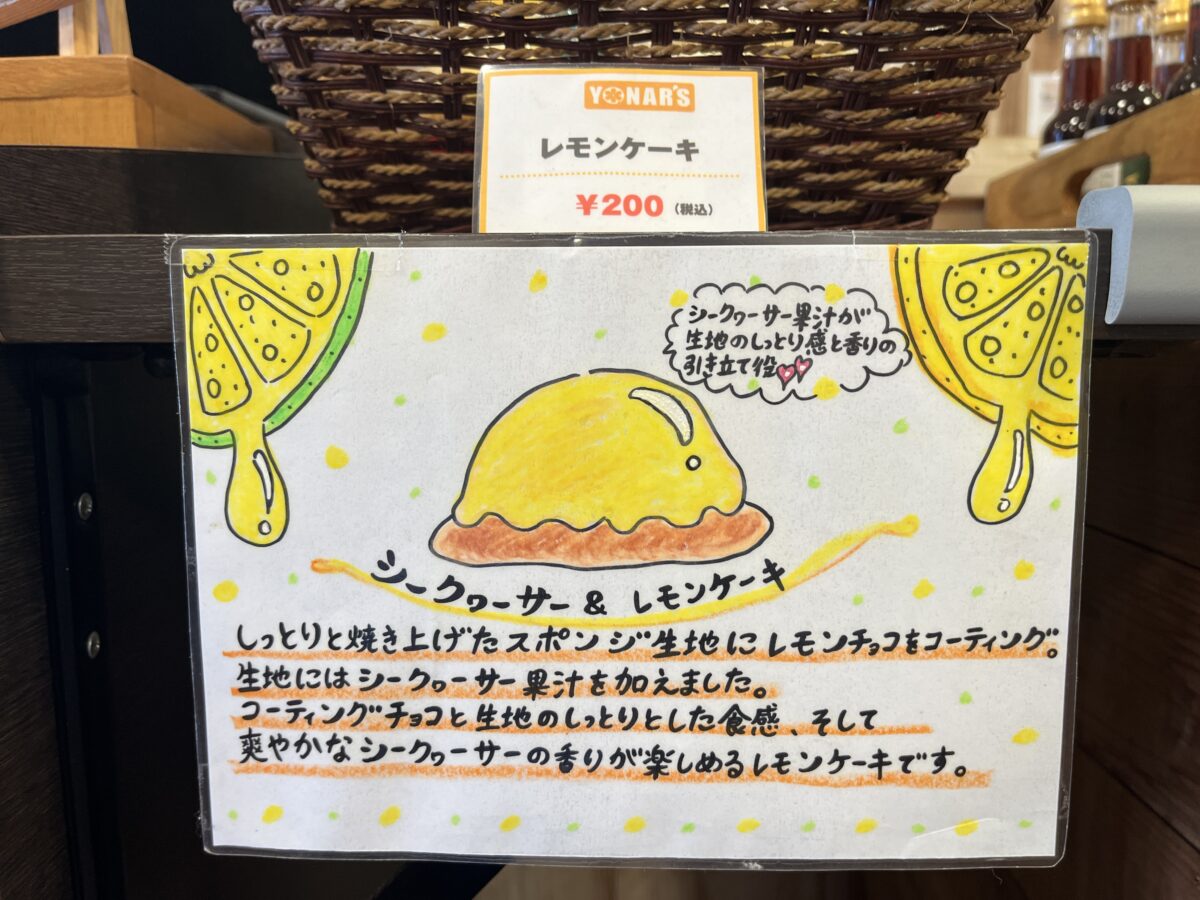 YONAR'S
レモンケーキ
¥200 (税込)
シークヮーサー果汁が
生地のしっとり感と香りの
引き立て役
シークヮーサー & レモンケーキ
しっとりと焼き上げたスポンジ生地にレモンチョコをコーティング。
生地にはシークヮーサー果汁を加えました。
コーティングチョコと生地のしっとりとした食感、そして
爽やかなシークヮーサーの香りが楽しめるレモンケーキです。